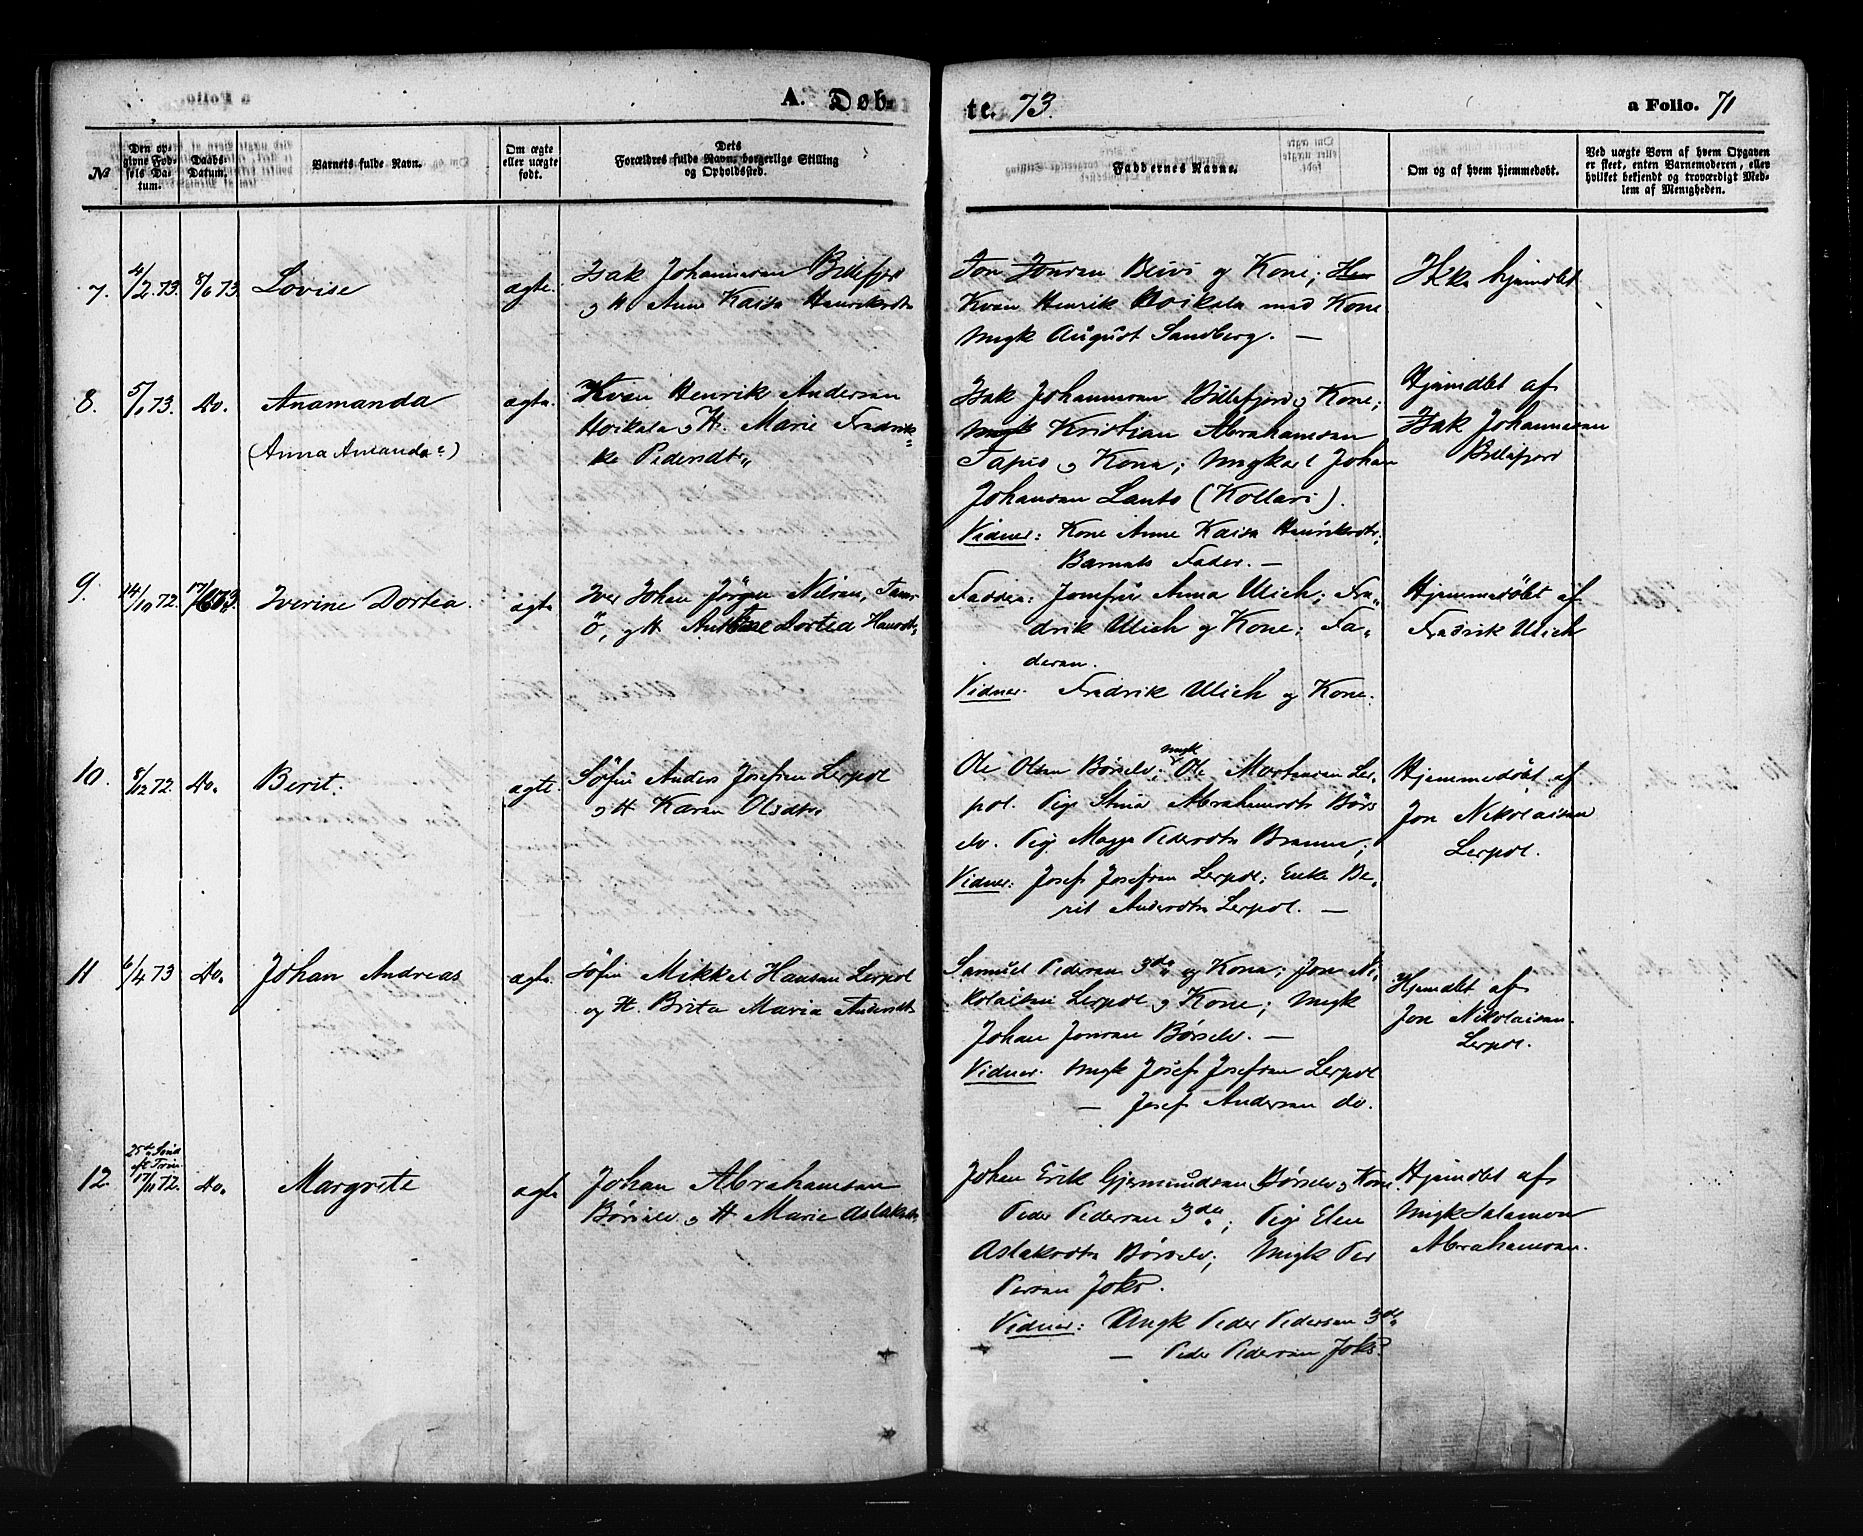 A. Døb-
te. 73.
a Folio. 71
№
Den op-
givne Fød-
sels Da-
tum.
Daabs-
Datum.
Barnets fulde Navn.
Om ægte
eller uægte
født.
Dets
Forældres fulde Navn, borgerlige Stilling
og Opholdssted.
Faddernes Navne.
Om og af hvem hjemmedøbt.
Ved uægte Børn af hvem Opgaven
er skeet, enten Barnemoderen, eller
hvilket bekjendt og troværdigt Med-
lem af Menigheden.
7.
4/2 73.
8/6 73.
Lovise
ægte.
Isak Johannesen Billefjord
og H. Anne Kaisa Henriksdtr
Jon Jonsen Beivi og Kone; Hen
Kvæn Henrik Hoikala med Kone
Ungk August Sandberg. —
Ikke hjemdbt
8.
5/1 73.
Do.
Anamanda
(Anna Amanda?)
ægte.
Kvæn Henrik Andersen
Hoikala og H. Marie Fredrik-
ke Pedersdtr
Isak Johannesen Billefjord og Kone;
Ungk Kristian Abrahamsen
Tapio og Kone; Ungkarl Johan
Johansen Lanto (Kollari).
Vidner: Kone Anne Kaisa Henriksdtr.
Barnets Fader. —
Hjemdbt af
Isak Johannesen
Billefjord
9.
14/10 72.
17/6 73.
Iverine Dortea.
ægte
Iver Johan Jørgen Nilsen, Tams-
ö, og H. Antone Dortea Hansdtr
Faddere: Jomfru Anna Ulich; Fre-
drik Ulich og Kone; Fa-
deren.
Vidner. Fredrik Ulich og Kone.
Hjemmedøbt af
Fredrik Ulich
10.
8/12 72.
Do.
Berit.
ægte.
Søfin Anders Josefsen Lerpol
og H. Karen Olsdtr
Ole Olsen Børselv; Ungk Ole Mortensen Ler-
pol. Pige Stina Abrahamsdtr Børs
elv. Pige Magga Pedersdtr Brenna;
Vidner: Josef Josefsen Lerpol; Enke Be-
rit Andersdtr Lerpol. —
Hjemmedøbt af
Jon Nikolaisen
Lerpol.
11
6/4 73
Do.
Johan Andreas
ægte.
Søfin Mikkel Hansen Lerpol
og H. Brita Maria Andersdtr
Samuel Pedersen 3de og Kone; Jon Ni-
kolaisen Lerpol og Kone; Ungk
Johan Jonsen Børselv. —
Vidner. Ungk Josef Josefsen Lerpol
— Josef Andersen do.
Hjemdbt af
Jon Nikolaisen
Lerpol.
12.
25de Sönd
eft Trin.
17/11 72.
Do.
Margrete
ægte
Johan Abrahamsen
Børselv og H. Marie Aslaksdtr
Johan Erik Gjermundsen Børselv og Kone
Peder Pedersen 3de; Pige Elen
Aslaksdtr Børselv; Ungk Per
Persen Joks.
Vidner: Ungk Peder Pedersen 3de
— Peder Pedersen Joks.
Hjemdbt af
Ungk Salamon
Abrahamsen.